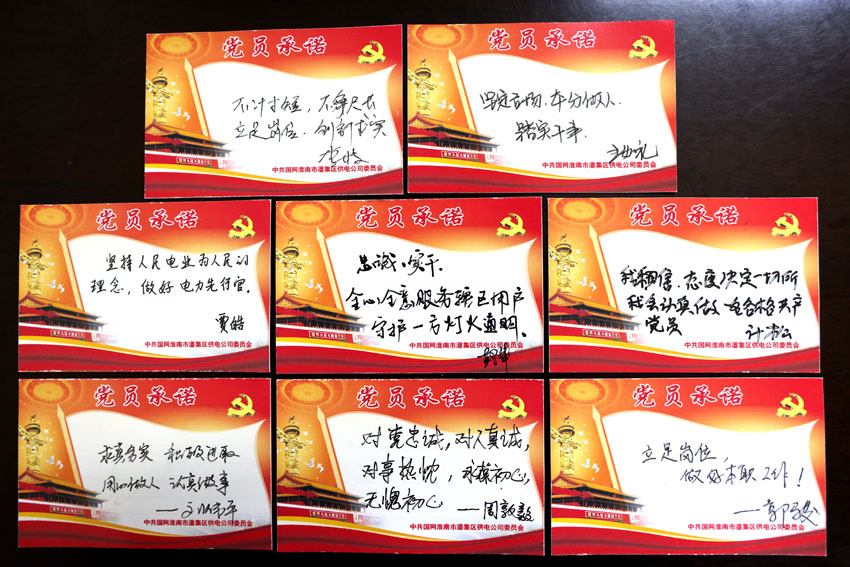 党员承诺
不计寸短，不争尺长
立足岗位、创新求实
中共国网淮南市潘集区供电公司委员会
党员承诺
本分做人
踏实干事．
中共国网淮南市潘集区供电公司委员会
党员承诺
坚持人民电业为人民的
理念，做好电力先行官．
贾皓
中共国网淮南市潘集区供电公司委员会
党员承诺
忠诚、实干．
全心全意服务辖区用户
守护一方灯火通明．
中共国网淮南市潘集区供电公司委员会
党员承诺
我相信、态度决定一切所
我会认真做 合格共产
党员
中共国网淮南市潘集区供电公司委员会
党员承诺
求真务实 积极进取
用心做人 认真做事
中共国网淮南市潘集区供电公司委员会
党员承诺
对党忠诚，对人真诚，
对事热忱，永葆初心，
无愧初心 ——周敦毅
中共国网淮南市潘集区供电公司委员会
党员承诺
立足岗位，
做好本职工作！
中共国网淮南市潘集区供电公司委员会